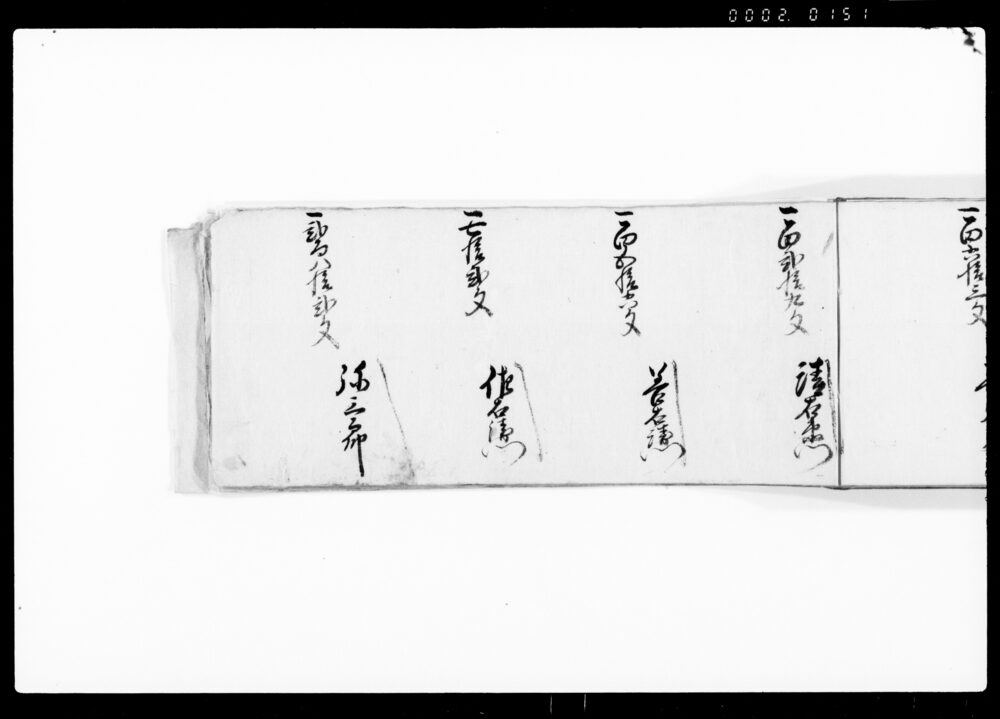 0002. 0151
一百六拾三文
一百弐拾九文
清右衛門
一百五拾六文
善右衛門
一七拾弐文
佐右衛門
一弐百八拾弐文
弥三郎